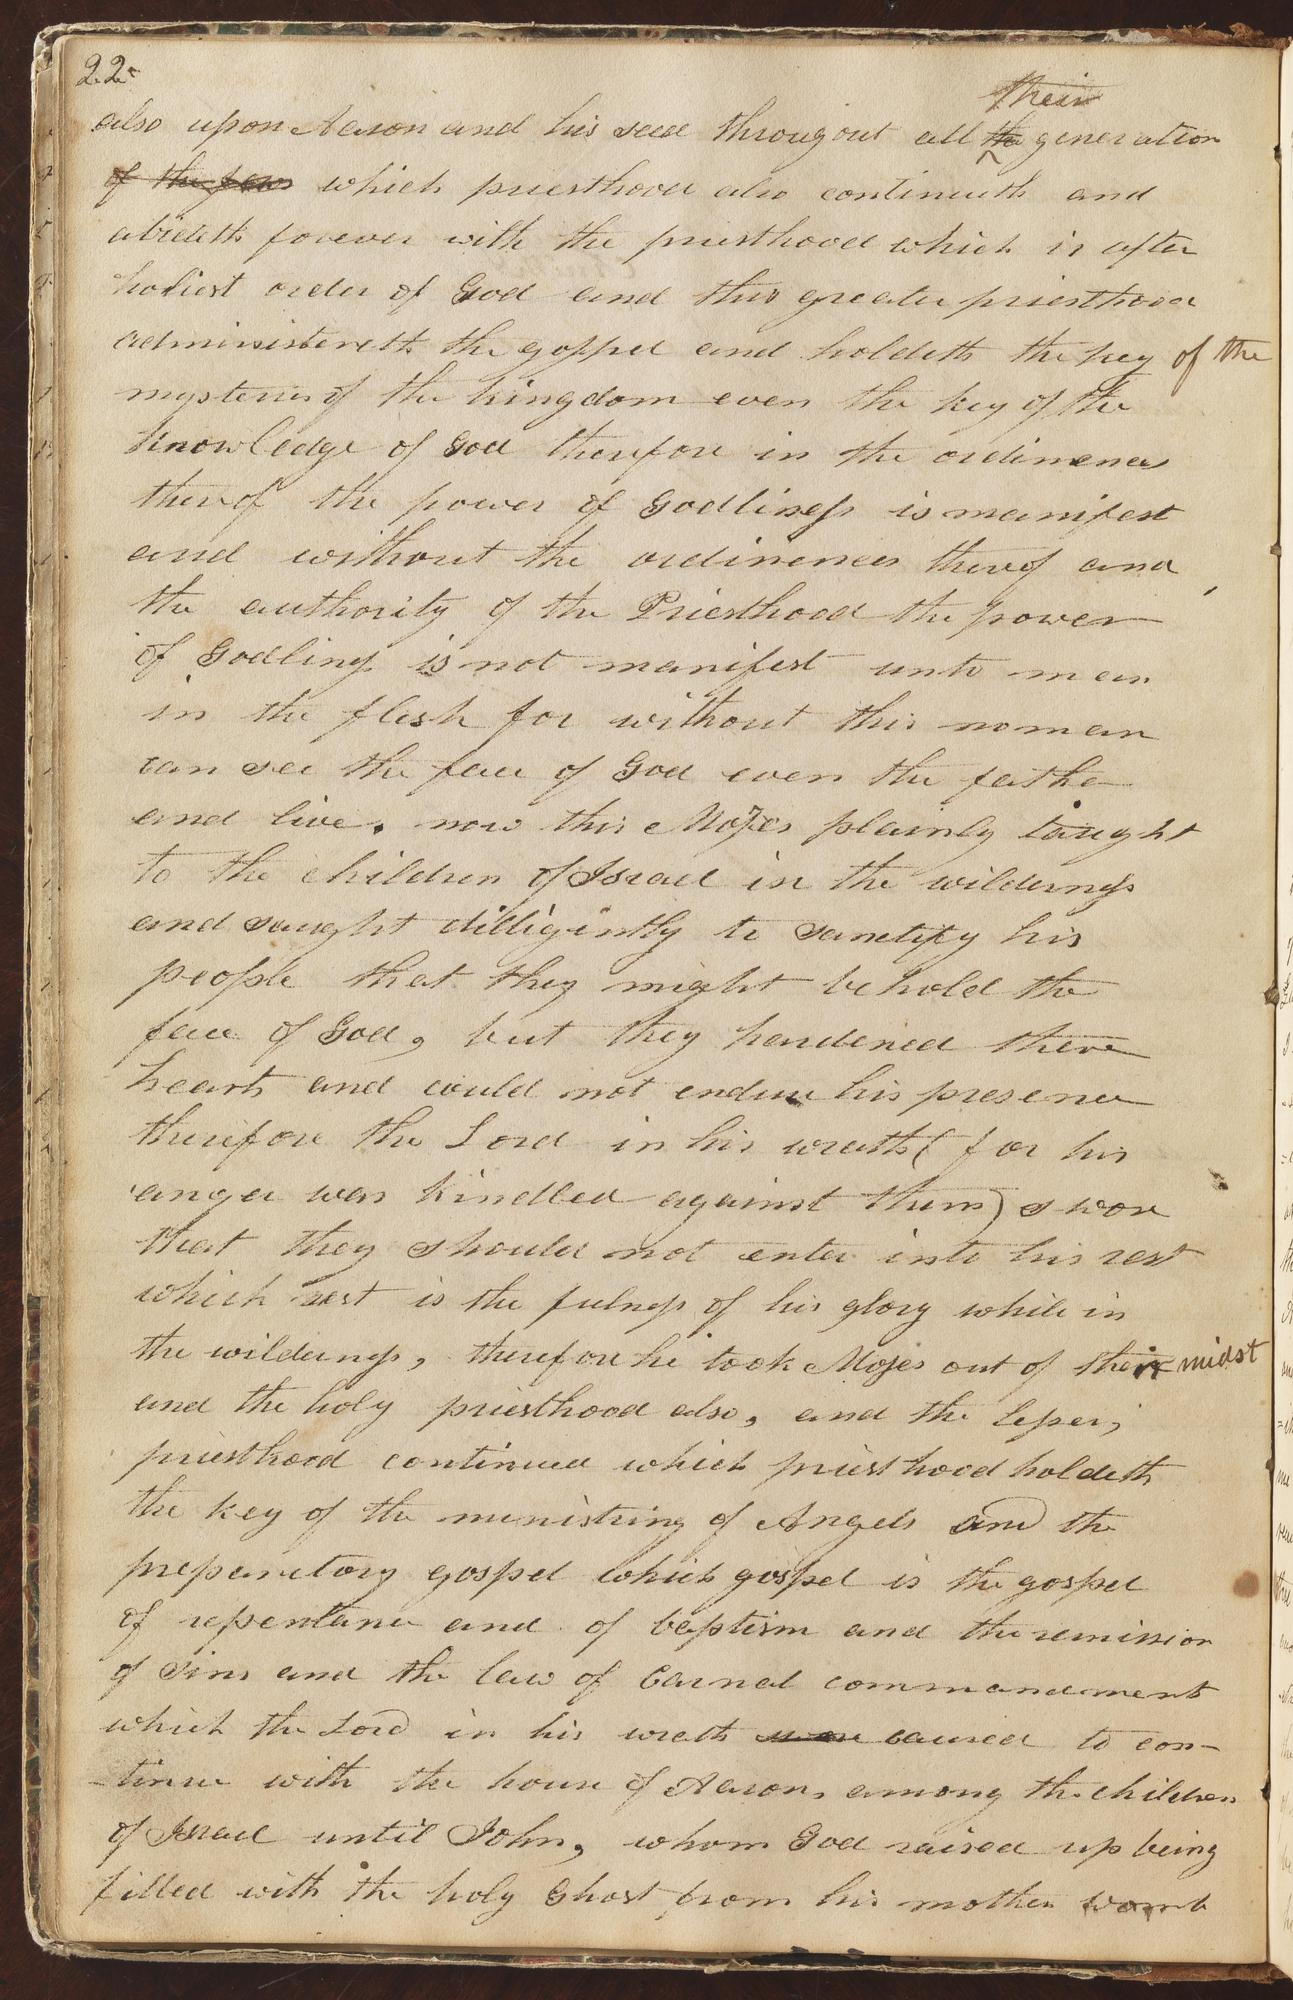 22.
their
also upon Aaron and his seed througout all the generation
of the Jews which priesthood also continueth and
abideth forever with the priesthood which is after
holiest order of God and this greater priesthood
administereth the gospel and holdeth the key of the
mysteries of the kingdom even the key of the
knowledge of God therefore in the ordinences
therof the power of Godliness is manifest
and without the ordinences therof and
the authority of the Priesthood the power
of Godliness is not manifest unto man
in the flesh for without this no man
can see the face of God even the fathe
and live. now this Moses plainly taught
to the children of Israel in the wilderness
and saught dilligintly to sanctify his
people that they might behold the
face of God, but they hardened there
hearts and could not endure his presence
therefore the Lord in his wrath (for his
anger was kindled against them) swore
that they should not enter into his rest
which rest is the fulness of his glory while in
the wilderness, therefore he took Moses out of their midst
and the holy priesthood also, and the leser,
priesthood continued which priesthood holdeth
the key of the ministring of Angels and the
preparatory gospel which gospel is the gospel
of repentance and of baptism and the remission
of sins and the law of Carnal commandments
which the Lord in his wrath caused to con-
-tinue with the house of Aaron, among the children
of Israel until John, whom God raised up being
filled with the holy Ghost from his mother womb